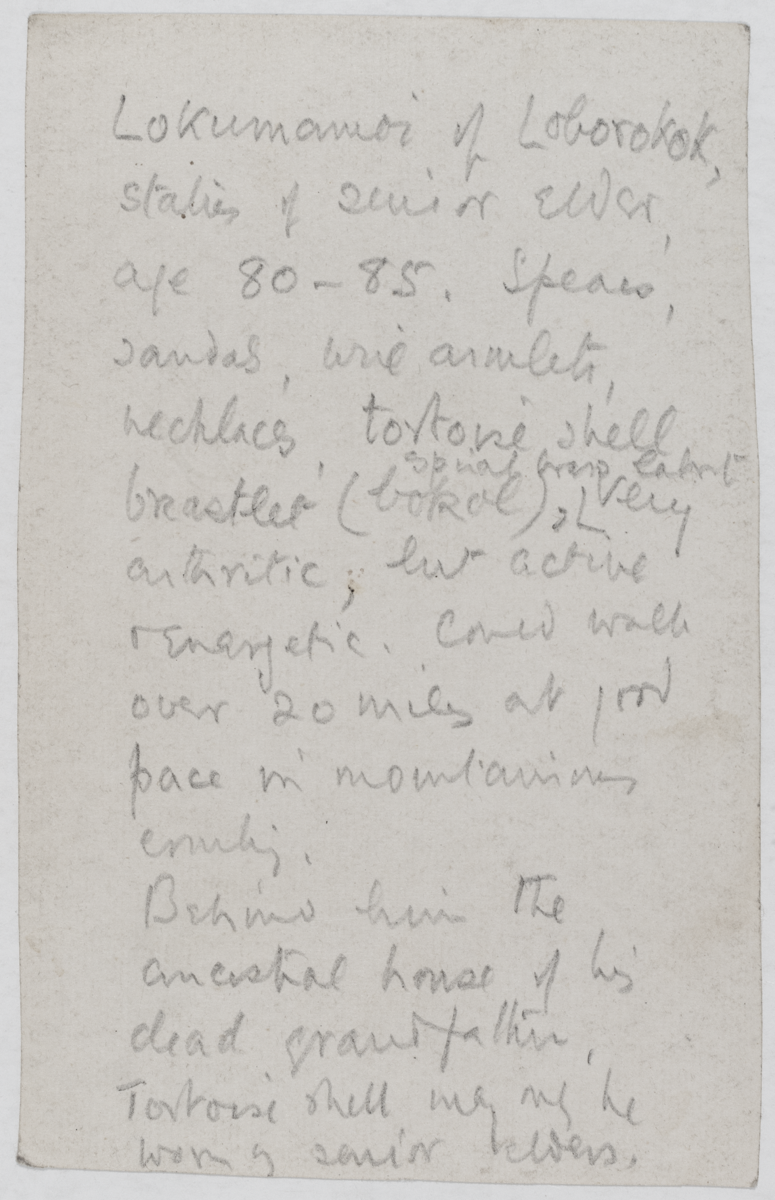 Lokumamoi of Loborokok,
status of senior elder,
age 80-85. Spears,
sandals, wire armlets,
necklaces, tortoise shell
spiral brass
breastlet (bokol), very
arthritic; but active
& energetic. Could walk
over 20 miles at good
pace in mountainous
country.
Behind him the
ancestral house of his
dead grandfather,
Tortoise shell may only be
worn by senior elders.